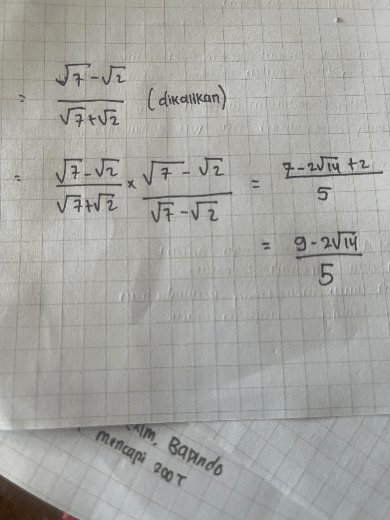 = √7 - √2 / √7 + √2 (dikalikan)
= √7 - √2 / √7 + √2 × √7 - √2 / √7 - √2 = 7 - 2√14 + 2 / 5
= 9 - 2√14 / 5
Bapindo
mencapi 200T